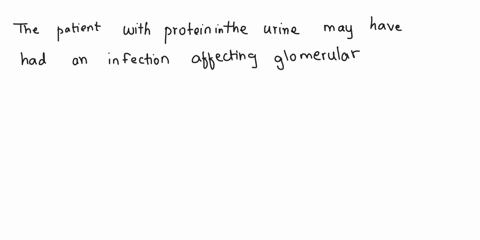 The patient with protein in the urine may have
had an infection affecting glomerular